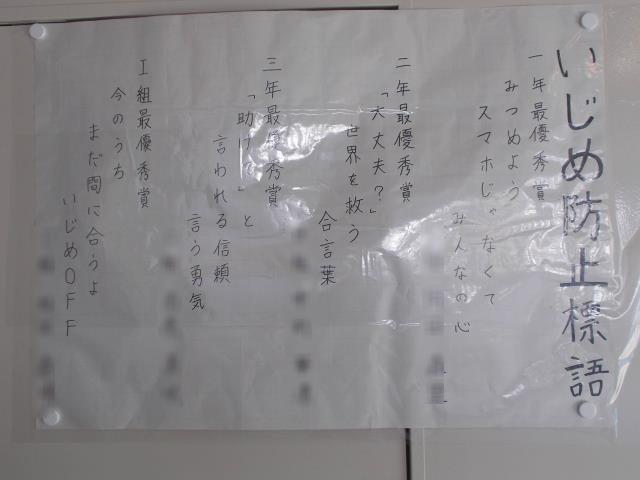 いじめ防止標語
一年最優秀賞
みつめよう
スマホじゃなくて
みんなの心
二年最優秀賞
「大丈夫？」
世界を救う
合言葉
三年最優秀賞
「助けて」と
言われる信頼
言う勇気
I組最優秀賞
今のうち
まだ間に合うよ
いじめOFF